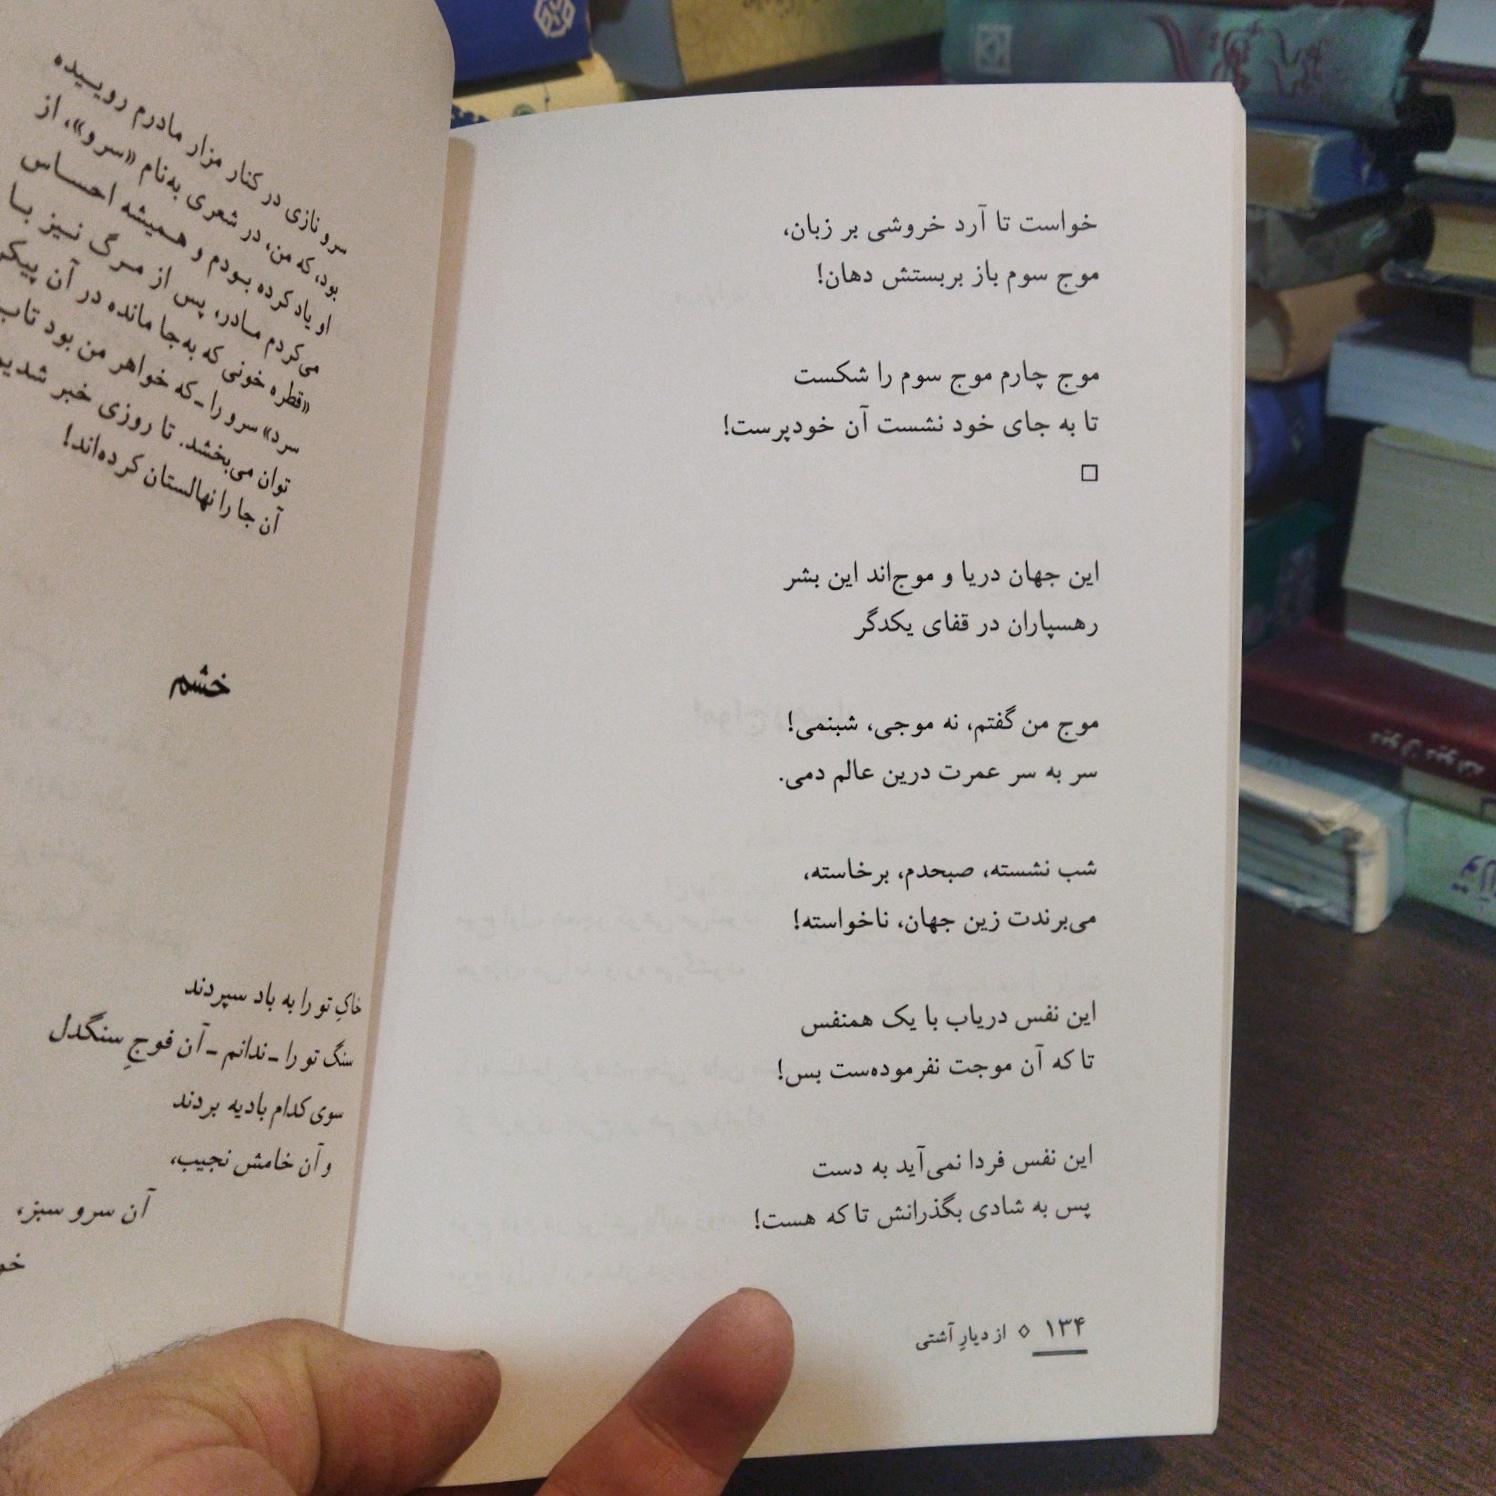 خواست تا آرد خروشی بر زبان،
موج سوم باز بربستش دهان!
موج چارم موج سوم را شکست
تا به جای خود نشست آن خودپرست!
□
این جهان دریا و موج‌اند این بشر
رهسپاران در قفای یکدگر
موج من گفتم، نه موجی، شبنمی!
سر به سر عمرت درین عالم دمی.
شب نشسته، صبحدم، برخاسته،
می‌برندت زین جهان، ناخواسته!
این نفس دریاب با یک همنفس
تا که آن موجت نفرموده‌ست بس!
این نفس فردا نمی‌آید به دست
پس به شادی بگذرانش تا که هست!
۱۳۴ ◇ از دیارِ آشتی
سرو نازی در کنار مزار مادرم روییده
بود، که من، در شعری به‌نام «سرو»، از
او یاد کرده بودم و همیشه احساس
می‌کردم مادر، پس از مرگ نیز با
«قطره خونی که به‌جا مانده در آن پیکر
سرد» سرو را ـ که خواهر من بود تاب
توان می‌بخشد. تا روزی خبر شدیم
آن جا را نهالستان کرده‌اند!
خشم
خاکِ تو را به باد سپردند
سنگ تو را ـ ندانم ـ آن فوجِ سنگدل
سوی کدام بادیه بردند
و آن خامش نجیب،
آن سرو سبز،